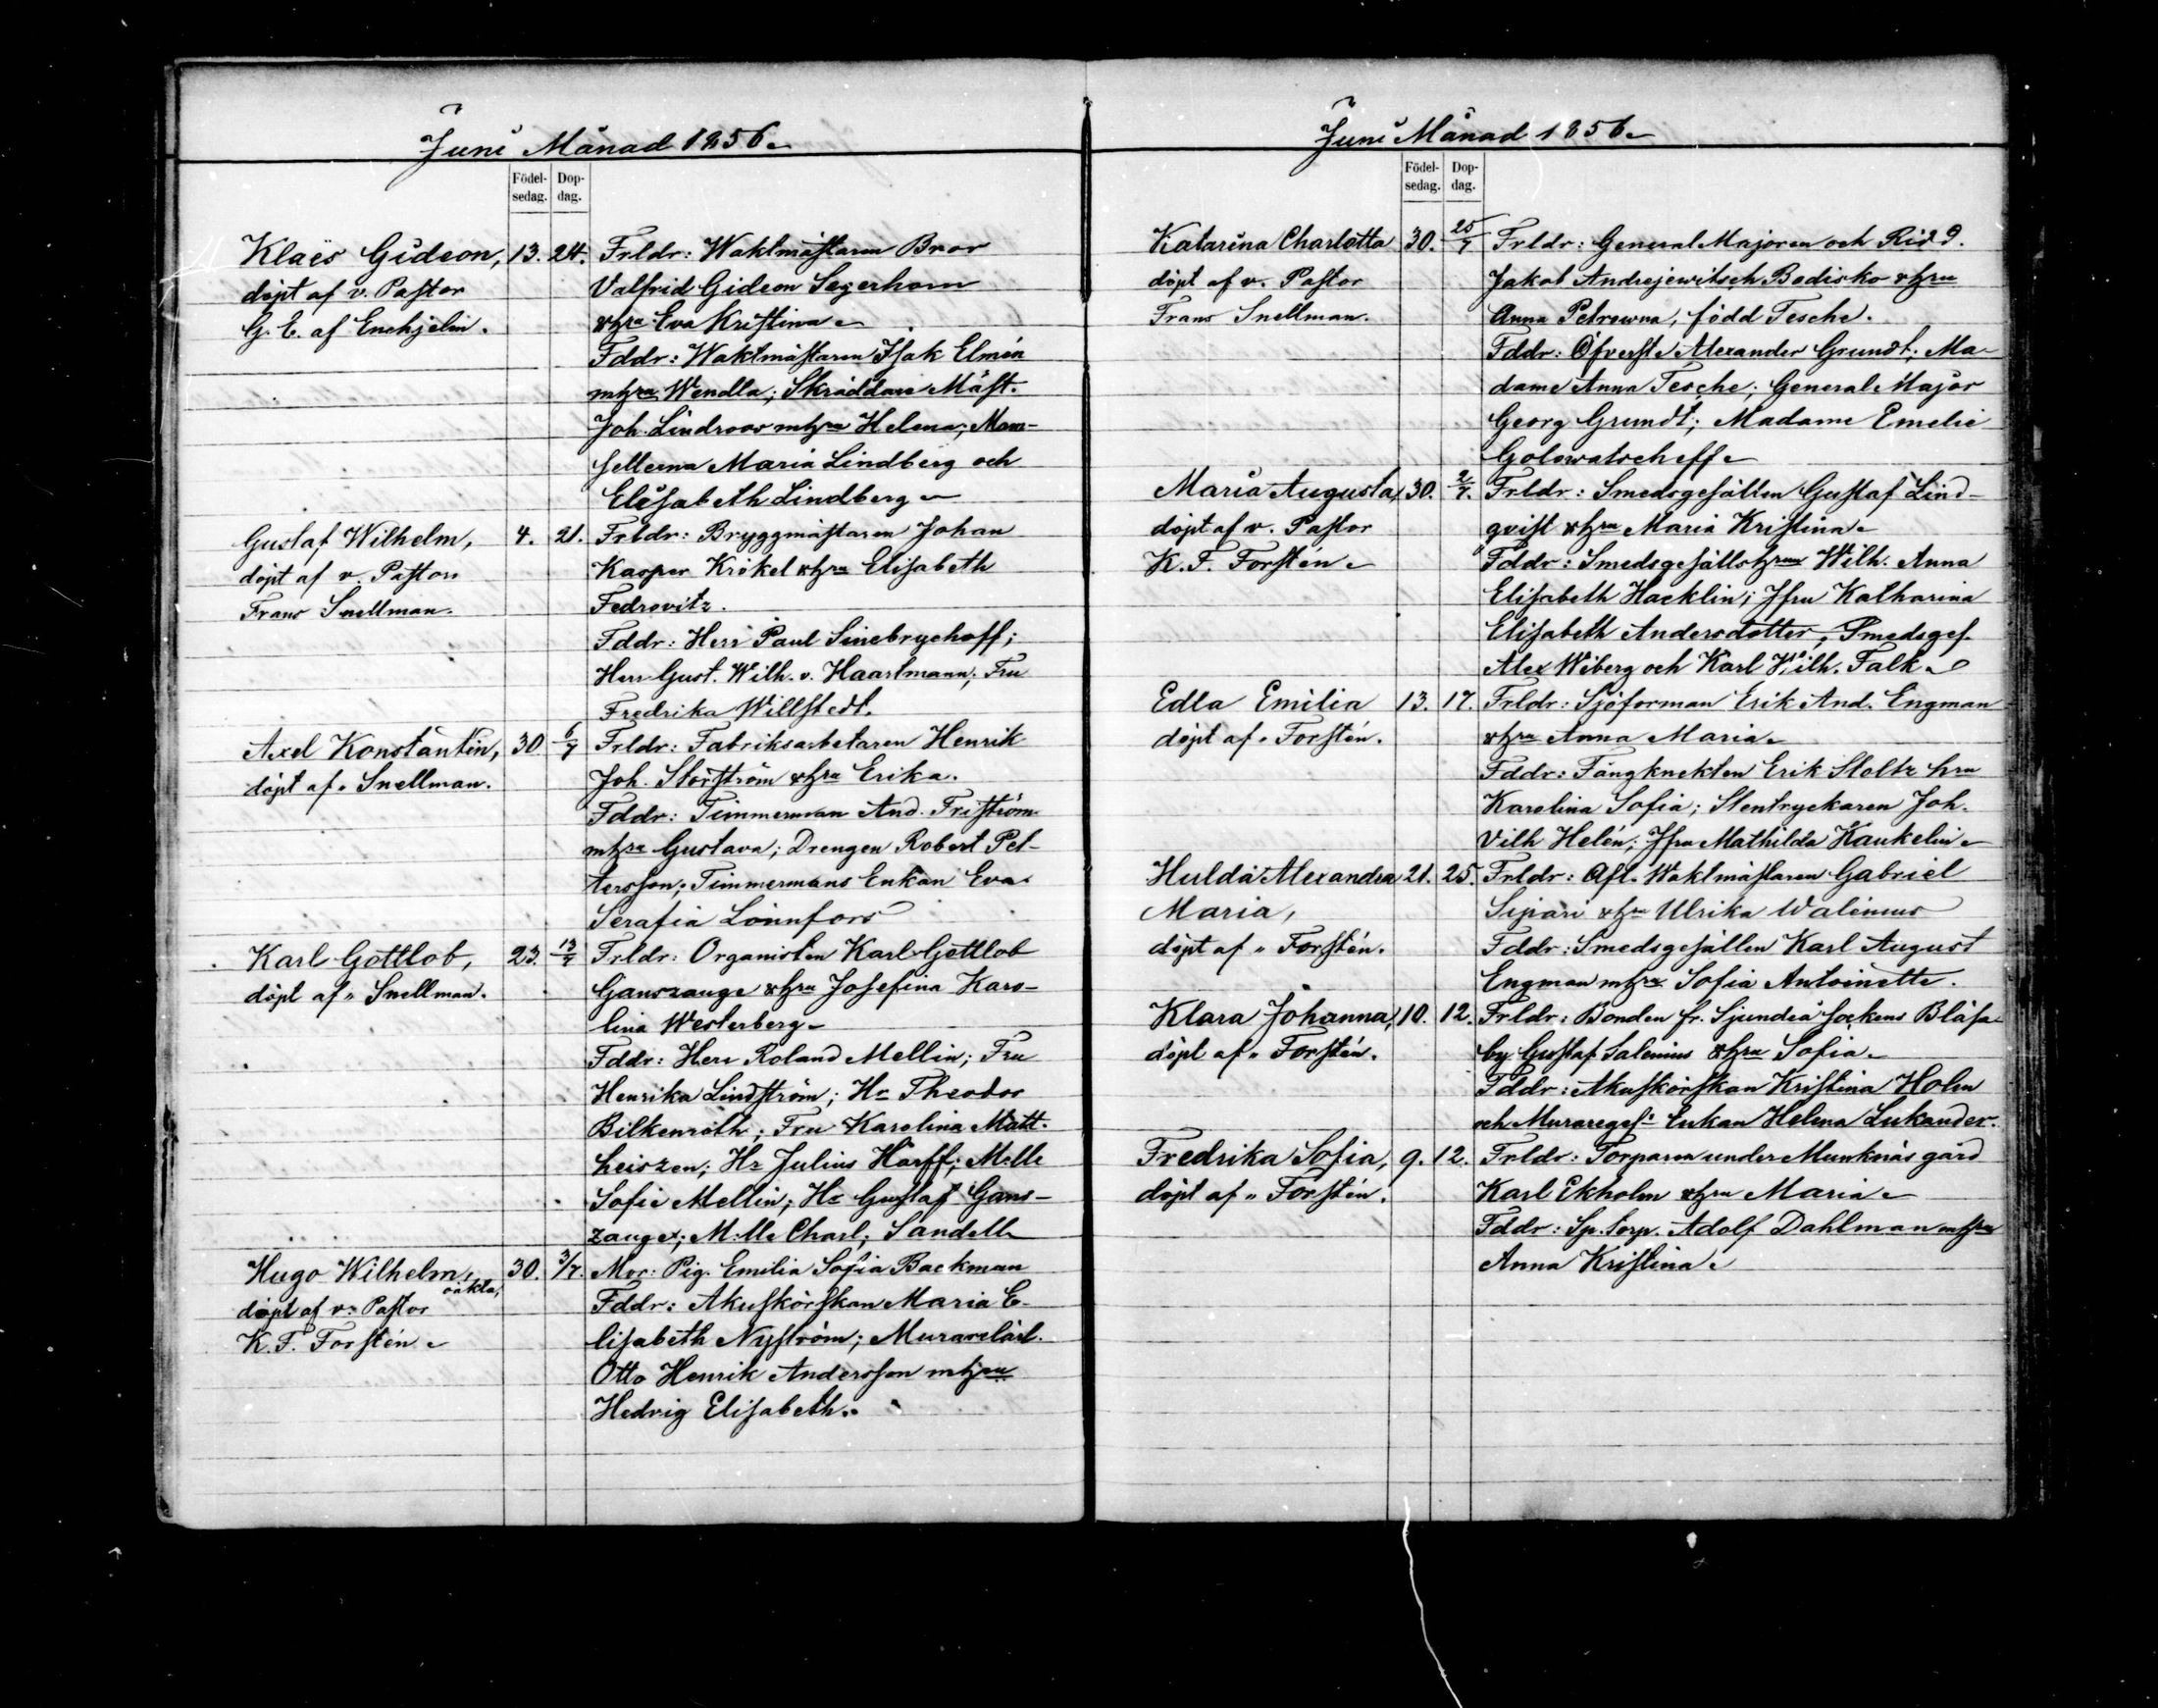 Juni Månad 1856
Födel- Dop-
sedag. dag.
Klaës Gideon, 13. 24. Frldr: Waktmästaren Bror
döpt af v. Pastor Valfrid Gideon Segerhom
G. E. af Enehjelm. o hru Eva Kristina
Fddr: Waktmästaren Isak Elmén
m hru Wendla; Skräddare Mäst.
Joh. Lindroos m hru Helena; Mam-
sellerna Maria Lindberg och
Elisabeth Lindberg
Gustaf Wilhelm, 4. 21. Frldr: Bryggmästaren Johan
döpt af v. Pastor Kasper Krökel o hru Elisabeth
Frans Snellman. Fedrovitz.
Fddr: Herr Paul Sinebrychoff;
Herr Gust. Wilh. v. Haartmann; Fru
Fredrika Willstedt.
Axel Konstantin, 30. 6/7 Frldr: Fabriksarbetaren Henrik
döpt af " Snellman. Joh. Storström o hru Erika.
Fddr: Timmerman And. Friström
m hru Gustava; Drengen Robert Pet-
tersson; Timmermans Enkan Eva
Serafia Lönnfors
Karl Gottlob, 23. 13/7 Frldr: Organisten Karl Gottlob
döpt af " Snellman. Ganszauge o hru Josefina Karo-
lina Westerberg
Fddr: Herr Roland Mellin; Fru
Henrika Lindström; Hr Theodor
Bilkenroth; Fru Karolina Matt-
heiszen; Hr Julius Harff; M:lle
Sofie Mellin; Hr Gustaf Gans-
zauge; M:lle Charl. Sandell
Hugo Wilhelm, 30. 3/7. Mor: Pig. Emilia Sofia Backman
oäkta,
döpt af v. Pastor Fddr: Akuskörskan Maria E-
K. F. Forstén lisabeth Nyström; Murarelärl.
Otto Henrik Andersson m hru
Hedvig Elisabeth.
Juni Månad 1856
Födel- Dop-
sedag. dag.
Katarina Charlotta 30. 25/7 Frldr: General Majoren och Ridd.
döpt af v. Pastor Jakob Andrejewitsch Bodisko o hru
Frans Snellman. Anna Petrowna, född Tesche.
Fddr: Öfverste Alexander Grundt; Ma-
dame Anna Tesche; General Major
Georg Grundt; Madame Emelie
Golowatscheff
Maria Augusta, 30. 2/7. Frldr: Smedsgesällen Gustaf Lind-
döpt af v. Pastor qvist o hru Maria Kristina
K. F. Forstén Fddr: Smedsgesälls hrun Wilh. Anna
Elisabeth Hacklin; Jfru Katharina
Elisabeth Andersdotter, Smedsges.
Alex Wiberg och Karl Wilh. Falk
Edla Emilia 13. 17. Frldr: Sjöforman Erik And. Engman
döpt af " Forstén. o hru Anna Maria
Fddr: Fångknekten Erik Stoltz hru
Karolina Sofia; Stentryckaren Joh.
Vilh Helén; Jfru Mathilda Kaukelin
Hulda Alexandra 21. 25. Frldr: Afl. Waktmästaren Gabriel
Maria, Sipari o hru Ulrika Walenius
döpt af " Forstén. Fddr: Smedsgesällen Karl August
Engman m hru Sofia Antoinette.
Klara Johanna, 10. 12. Frldr: Bonden fr. Sjundeå sockens Blåsa
döpt af " Forstén. by Gustaf Salenius o hru Sofia
Fddr: Akuskörskan Kristina Holm
och Murareges: Enkan Helena Lukander.
Fredrika Sofia, 9. 12. Frldr: Torparen under Munknäs gård
döpt af " Forstén. Karl Ekholm o hru Maria
Fddr: Sp. Torp. Adolf Dahlman m hru
Anna Kristina